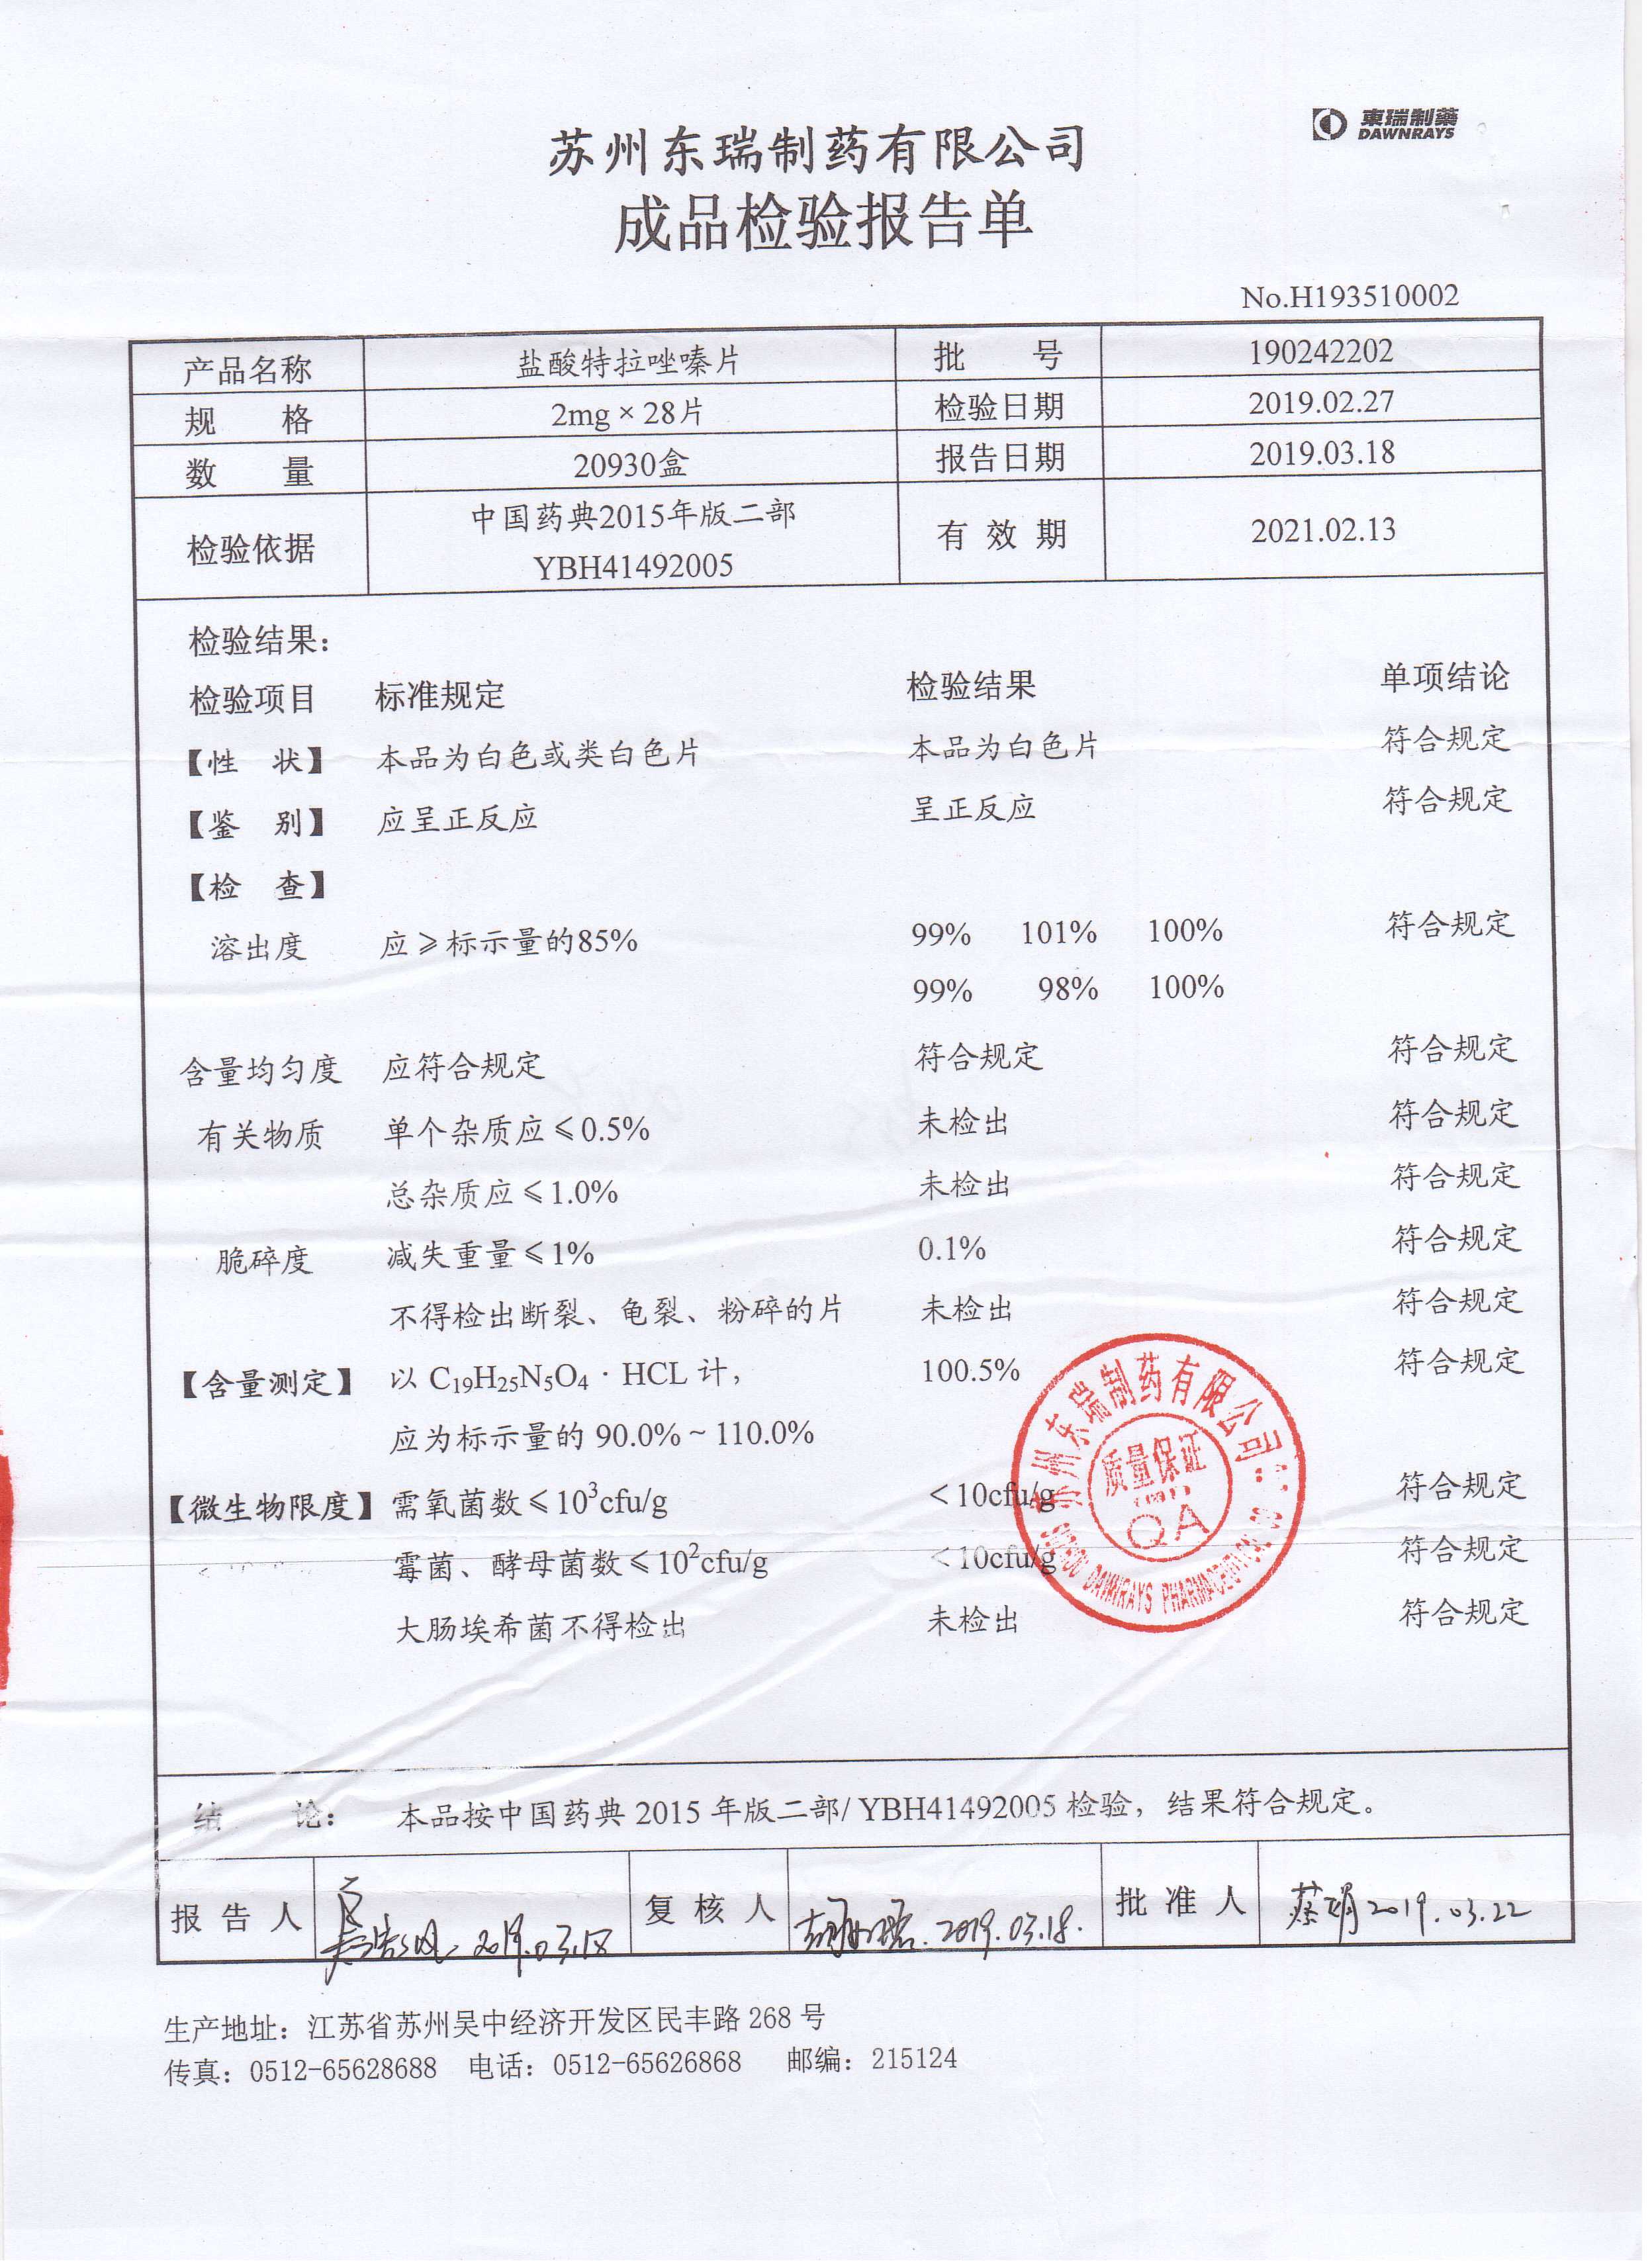 東瑞制藥
DAWNRAYS
苏州东瑞制药有限公司
成品检验报告单
No.H193510002
产品名称 盐酸特拉唑嗪片 批 号 190242202
规 格 2mg×28片 检验日期 2019.02.27
数 量 20930盒 报告日期 2019.03.18
检验依据 中国药典2015年版二部 有 效 期 2021.02.13
YBH41492005
检验结果：
检验项目 标准规定 检验结果 单项结论
【性 状】 本品为白色或类白色片 本品为白色片 符合规定
【鉴 别】 应呈正反应 呈正反应 符合规定
【检 查】
溶出度 应≥标示量的85% 99% 101% 100% 符合规定
99% 98% 100%
含量均匀度 应符合规定 符合规定 符合规定
有关物质 单个杂质应≤0.5% 未检出 符合规定
总杂质应≤1.0% 未检出 符合规定
脆碎度 减失重量≤1% 0.1% 符合规定
不得检出断裂、龟裂、粉碎的片 未检出 符合规定
【含量测定】 以 C19H25N5O4·HCL 计， 100.5% 符合规定
应为标示量的 90.0%~110.0%
【微生物限度】 需氧菌数≤10³cfu/g <10cfu/g 符合规定
霉菌、酵母菌数≤10²cfu/g <10cfu/g 符合规定
大肠埃希菌不得检出 未检出 符合规定
苏州东瑞制药有限公司
质量保证
QA
DAWNRAYS PHARMACEUTICAL CO
结 论： 本品按中国药典 2015 年版二部/ YBH41492005 检验，结果符合规定。
报 告 人 2019.03.18 复 核 人 2019.03.18. 批 准 人 蔡娟 2019.03.22
生产地址：江苏省苏州吴中经济开发区民丰路 268 号
传真：0512-65628688 电话：0512-65626868 邮编：215124